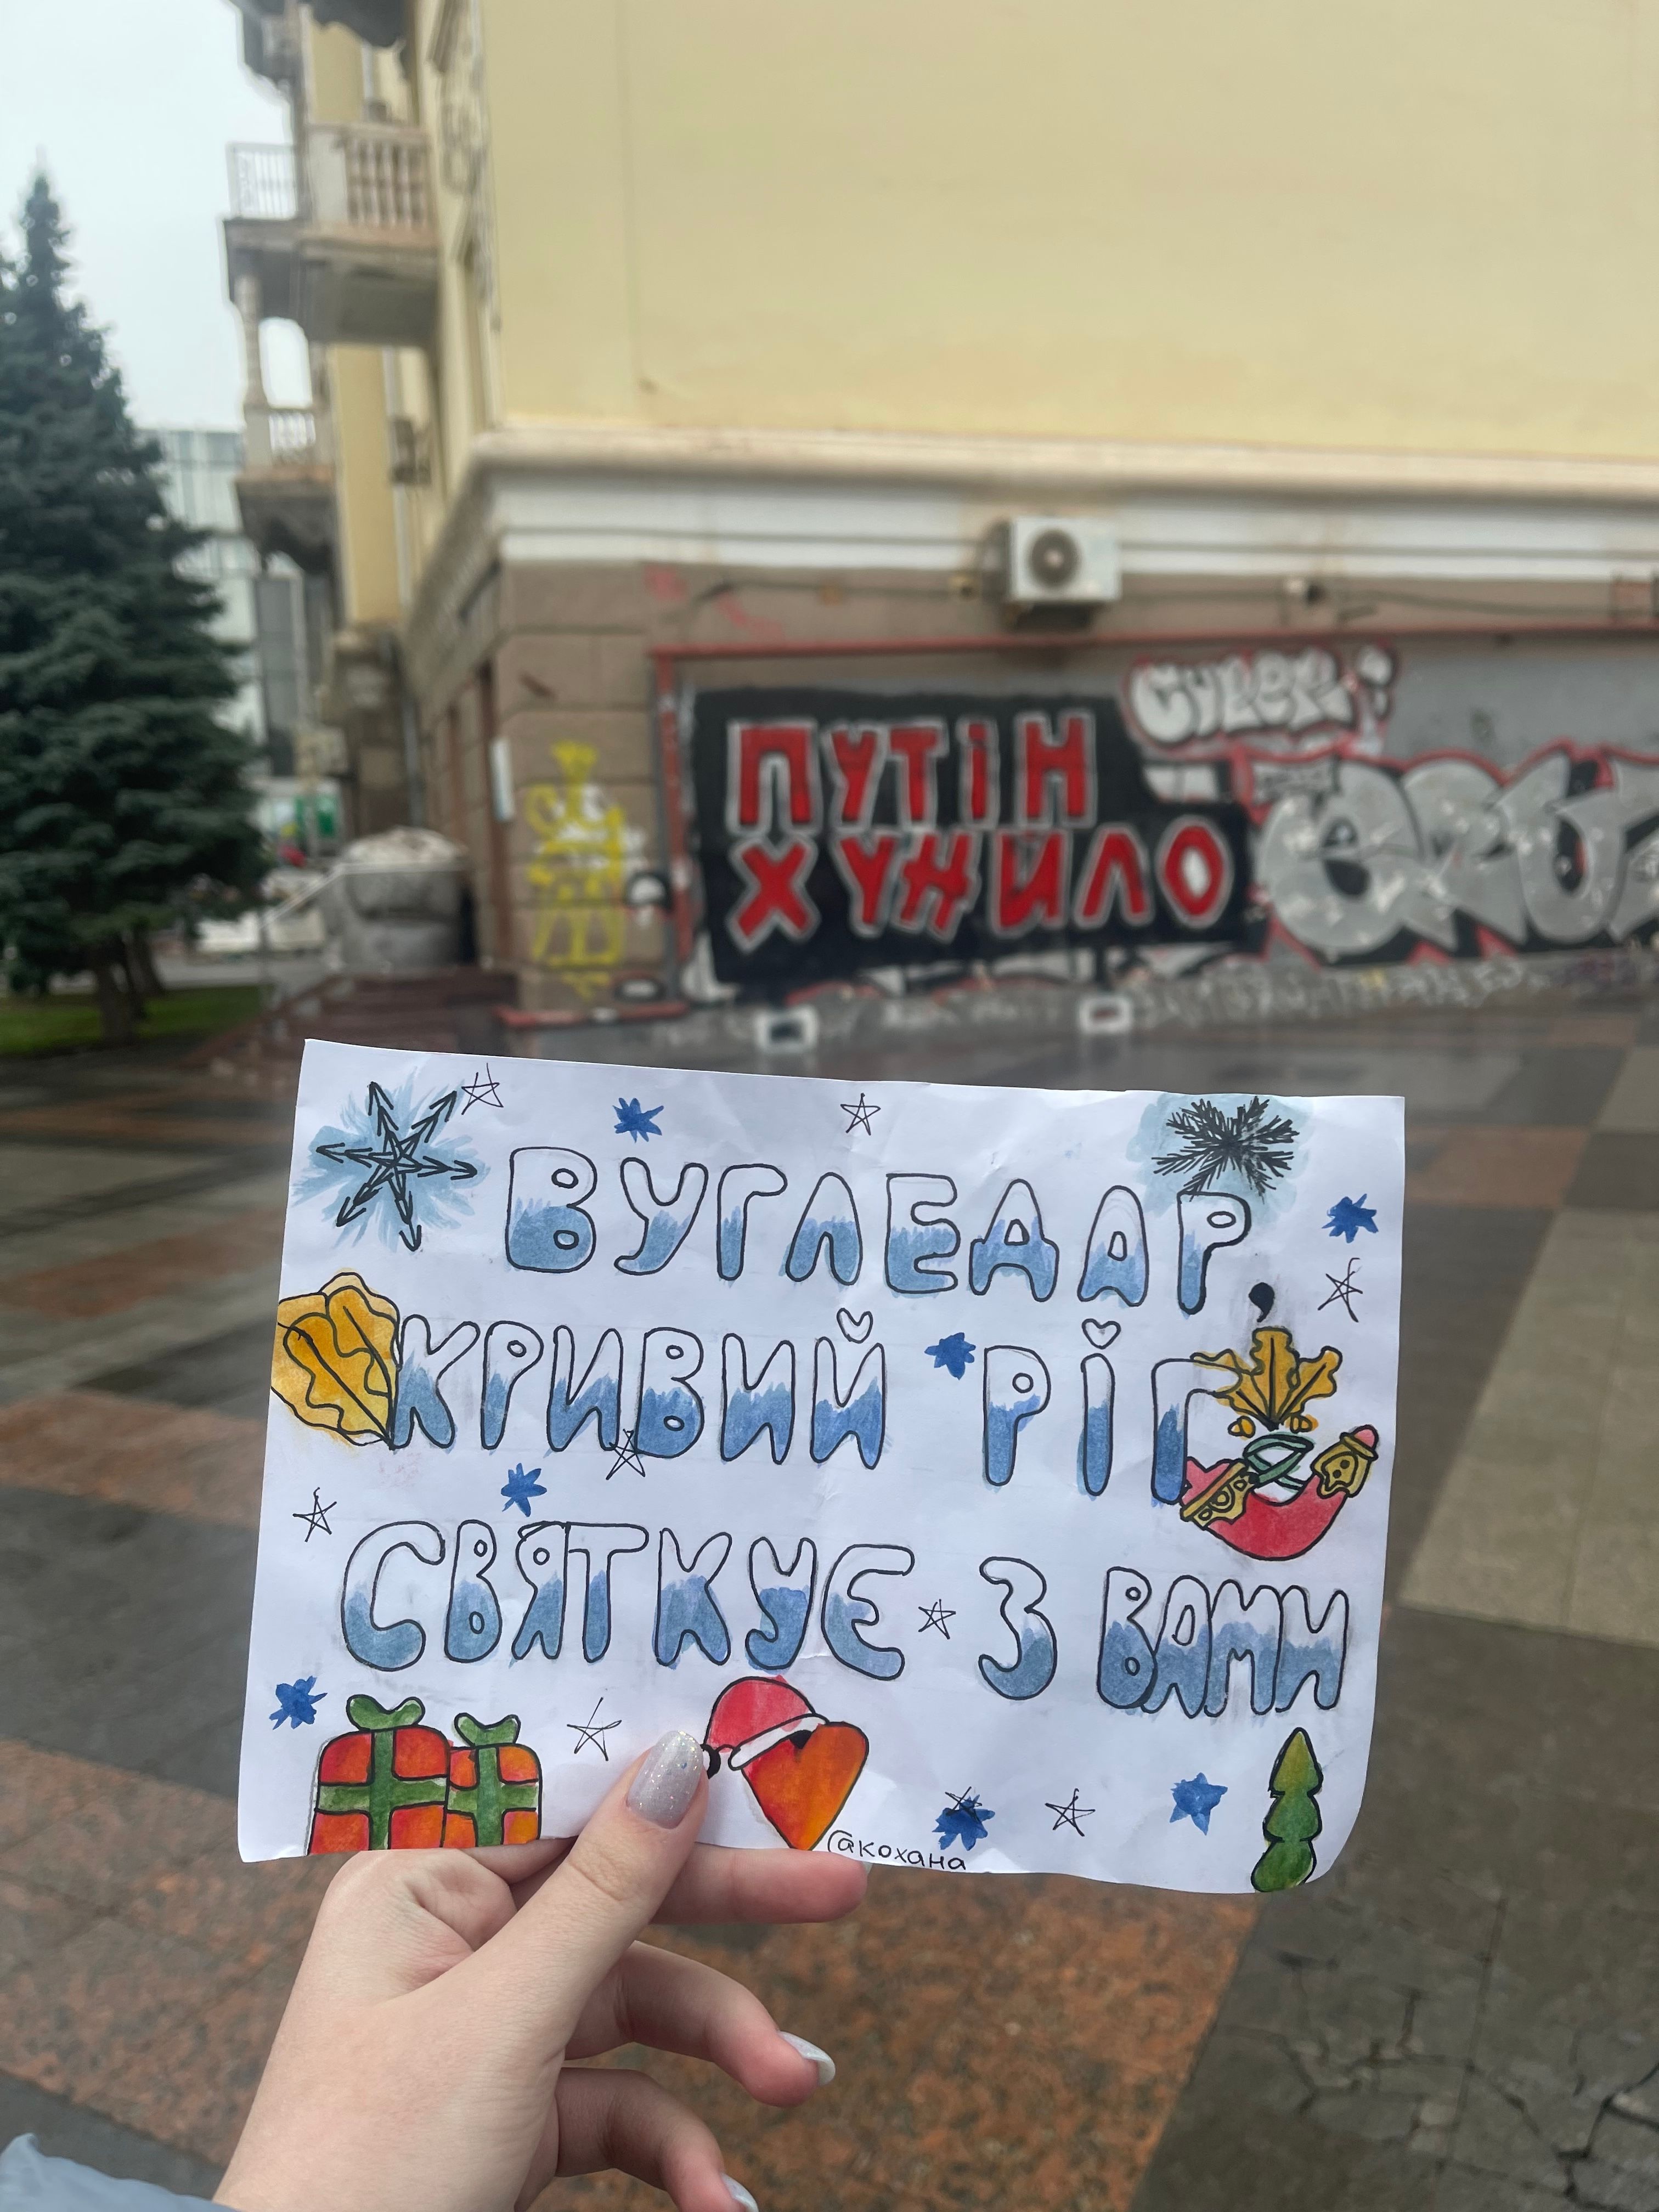 ПУТІН
ХУЙЛО
ВУГЛЕДАР,
КРИВИЙ РІГ
СВЯТКУЄ З ВАМИ
@кохана